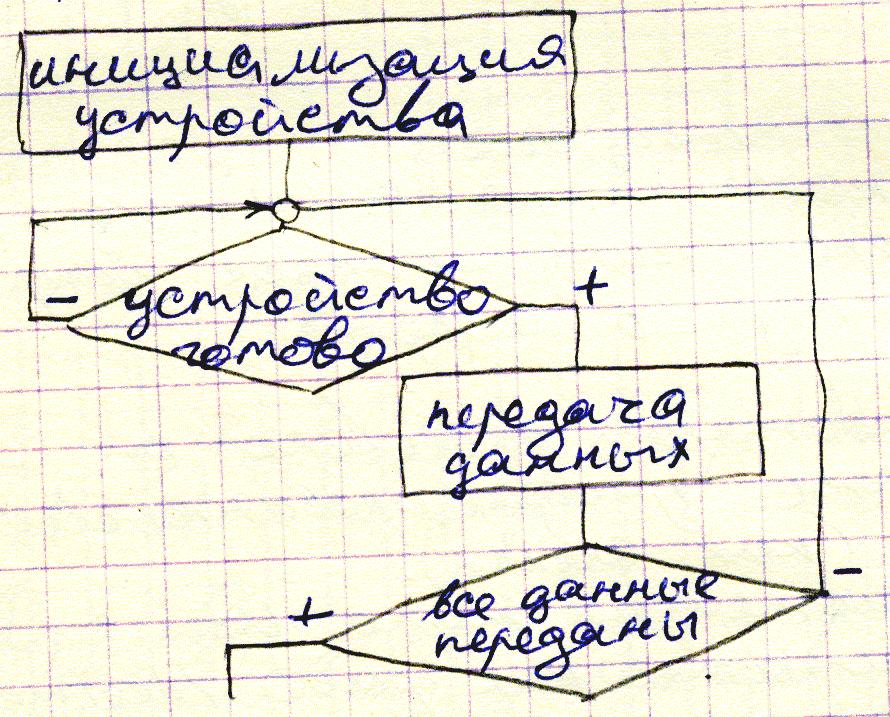 инициализация
устройства
-
+
устройство
готово
передача
данных
-
+
все данные
переданы